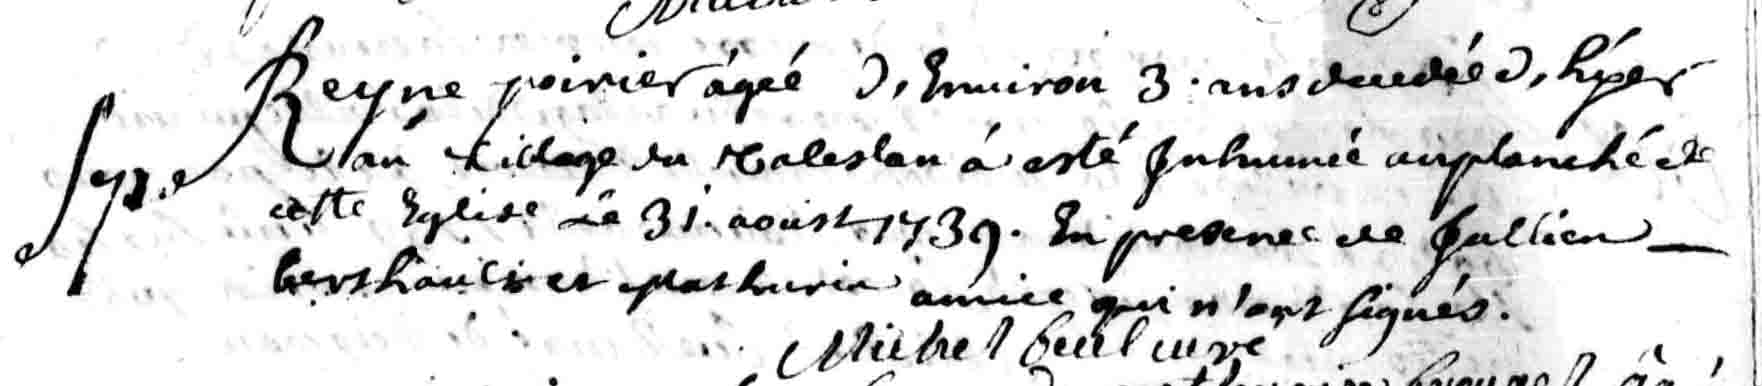 Reyne poirier ágeé d, Environ 3. ans deceédée d, hyer
au village du Maleslan á esté Inhumée au planché de
cette Eglise Le 31. aoust 1739. En presence de Jullien
berthault et Mathurin amice qui n'ont signés.
Michel